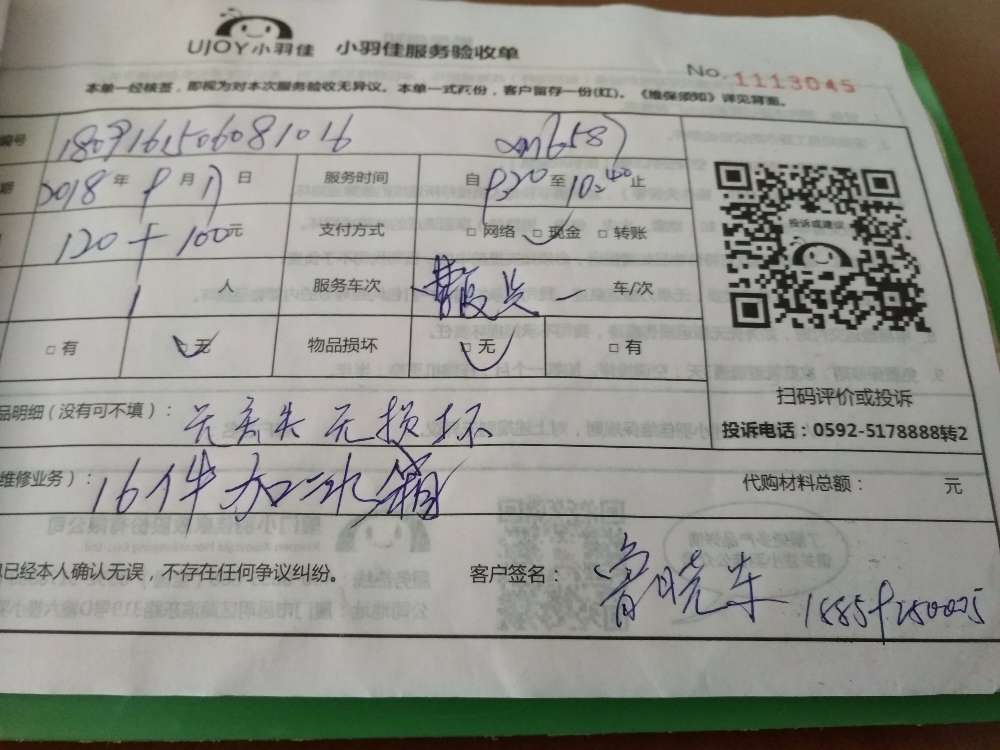 UJOY小羽佳 小羽佳服务验收单
No. 1113045
本单一经核签,即视为对本次服务验收无异议。本单一式两份,客户留存一份(红)。《维保须知》详见背面。
编号
期 2018 年 9 月 17 日 服务时间 自 9:20 至 10:40 止
120+100元 支付方式 □ 网络 □ 现金 □ 转账
1 人 服务车次 一 车/次
□ 有 □ 无 物品损坏 □ 无 □ 有
投诉或建议
扫码评价或投诉
投诉电话:0592-5178888转2
品明细(没有可不填): 无丢失 无损坏
维修业务): 16件加冰箱 代购材料总额: 元
已经本人确认无误,不存在任何争议纠纷。 客户签名: 鲁晓东